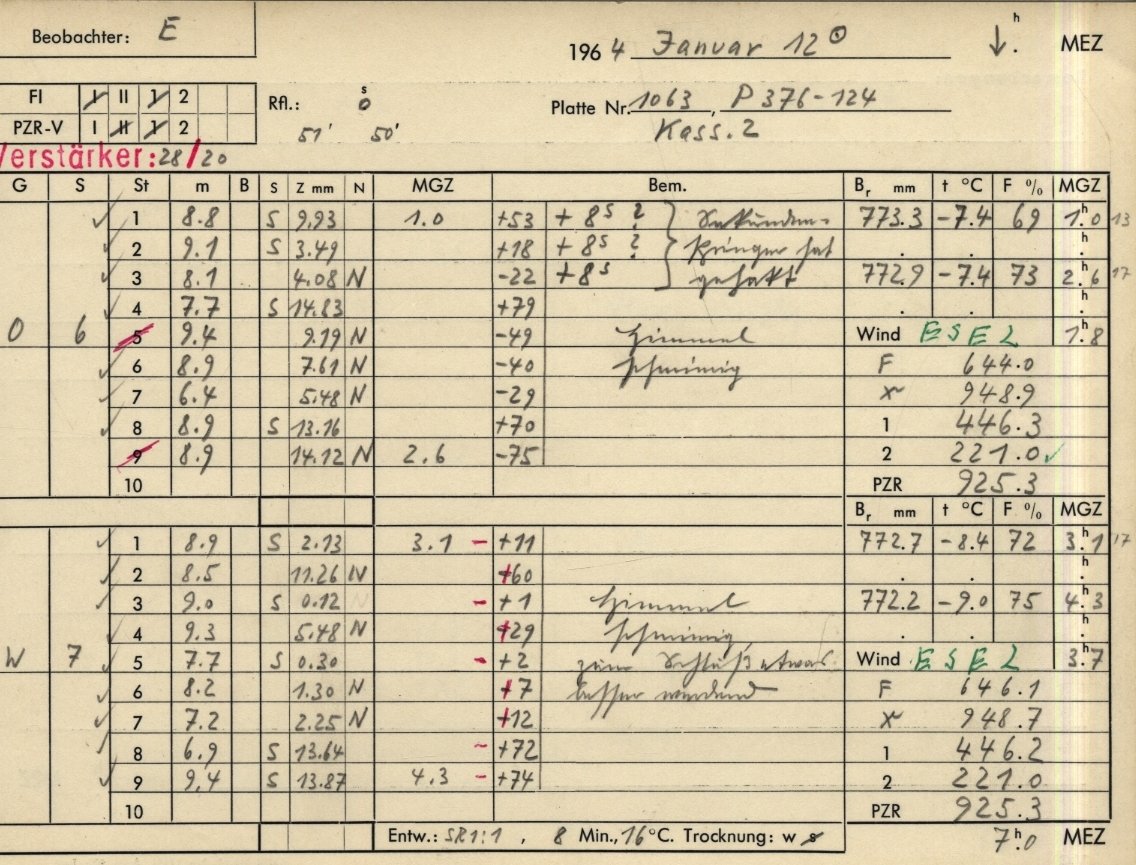 Beobachter: E
1964 Januar 12 ⊙ ↓ h . MEZ
FI I II 1 2
PZR-V I II 1 2
Rfl.: 0 s
51' 50'
Platte Nr. 1063, P 376-124
Kass. 2
Verstärker: 28/20
G S St m B S Z mm N MGZ Bem. Br mm t °C F % MGZ
1 8.8 S 9.93 1.0 +53 + 8s ? Sekunden- 773.3 -7.4 69 1h.0 13
2 9.1 S 3.49 +18 + 8s ? springer hat . . h.
3 8.1 4.08 N -22 +8s gehakt 772.9 -7.4 73 2h.6 17
4 7.7 S 14.83 +79 . . h.
O 6 5 9.4 9.19 N -49 Himmel Wind ESE 2 1h.8
6 8.9 7.61 N -40 schmierig F 644.0
7 6.4 5.48 N -29 948.9
8 8.9 S 13.16 +70 1 446.3
9 8.9 14.12 N 2.6 -75 2 221.0 ✓
10 PZR 925.3
Br mm t °C F % MGZ
1 8.9 S 2.13 3.1 - +11 772.7 -8.4 72 3h.1 17
2 8.5 11.26 N +60 . . h.
3 9.0 S 0.12 - +1 Himmel 772.2 -9.0 75 4h.3
4 9.3 5.48 N +29 schmierig, . . h.
W 7 5 7.7 S 0.30 - +2 zum Schluß etwas Wind ESE 2 3h.7
6 8.2 1.30 N +7 besser werdend F 646.1
7 7.2 2.25 N +12 948.7
8 6.9 S 13.64 - +72 1 446.2
9 9.4 S 13.87 4.3 - +74 2 221.0
10 PZR 925.3
Entw.: SR 1:1 , 8 Min., 16 °C. Trocknung: w s 7h.0 MEZ